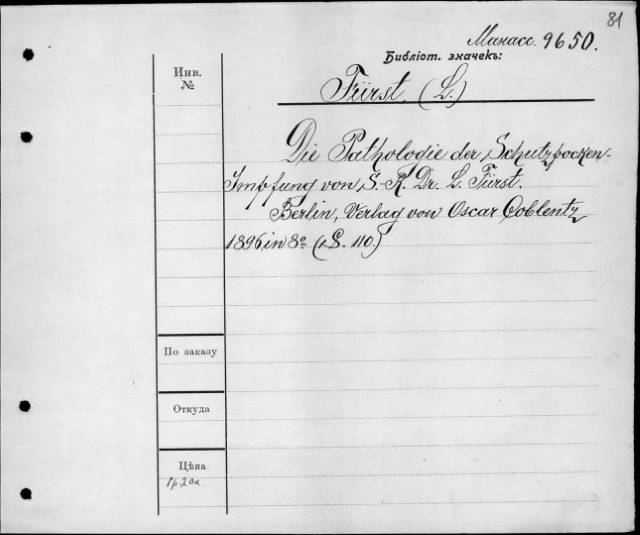 81
Манасс. 9650.
Библіот. значекъ:
Инв.
№
Fürst, (L.)
Die Pathologie der Schutzpocken-
Impfung von S.-R. Dr. L. Fürst.
Berlin, Verlag von Oscar Coblentz
1896, in 8º (S. 110.)
По заказу
Откуда
Цѣна
1 р. 20 к.